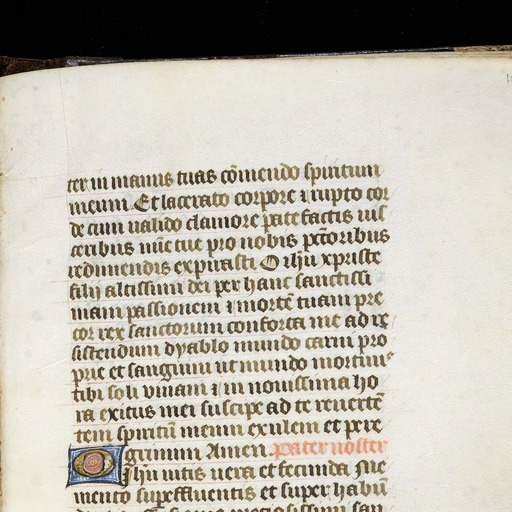 ter in manus tuas cōmendo spiritum
meum. Et lacerato corpore ⁊ rupto cor
de cum ualido clamore patefactis uis
ceribus mīe tue pro nobis pctōribus
redimendis expirasti O ihū xpriste
filij altissimi dei per hanc sanctissi
mam passionem ⁊ mortē tuam pre
cor rex sanctorum conforta me ad re
sistendum dyablo mundo carni pro
prie et sanguini ut mundo mortuus
tibi soli viuam ⁊ in nouissima ho
ra exitus mei suscipe ad te reuertē
tem spiritū meum exulem et pere
grinum Amen. Pater noster
O Ihū uitis uera et fecunda Me
mento superffluentis et super habū